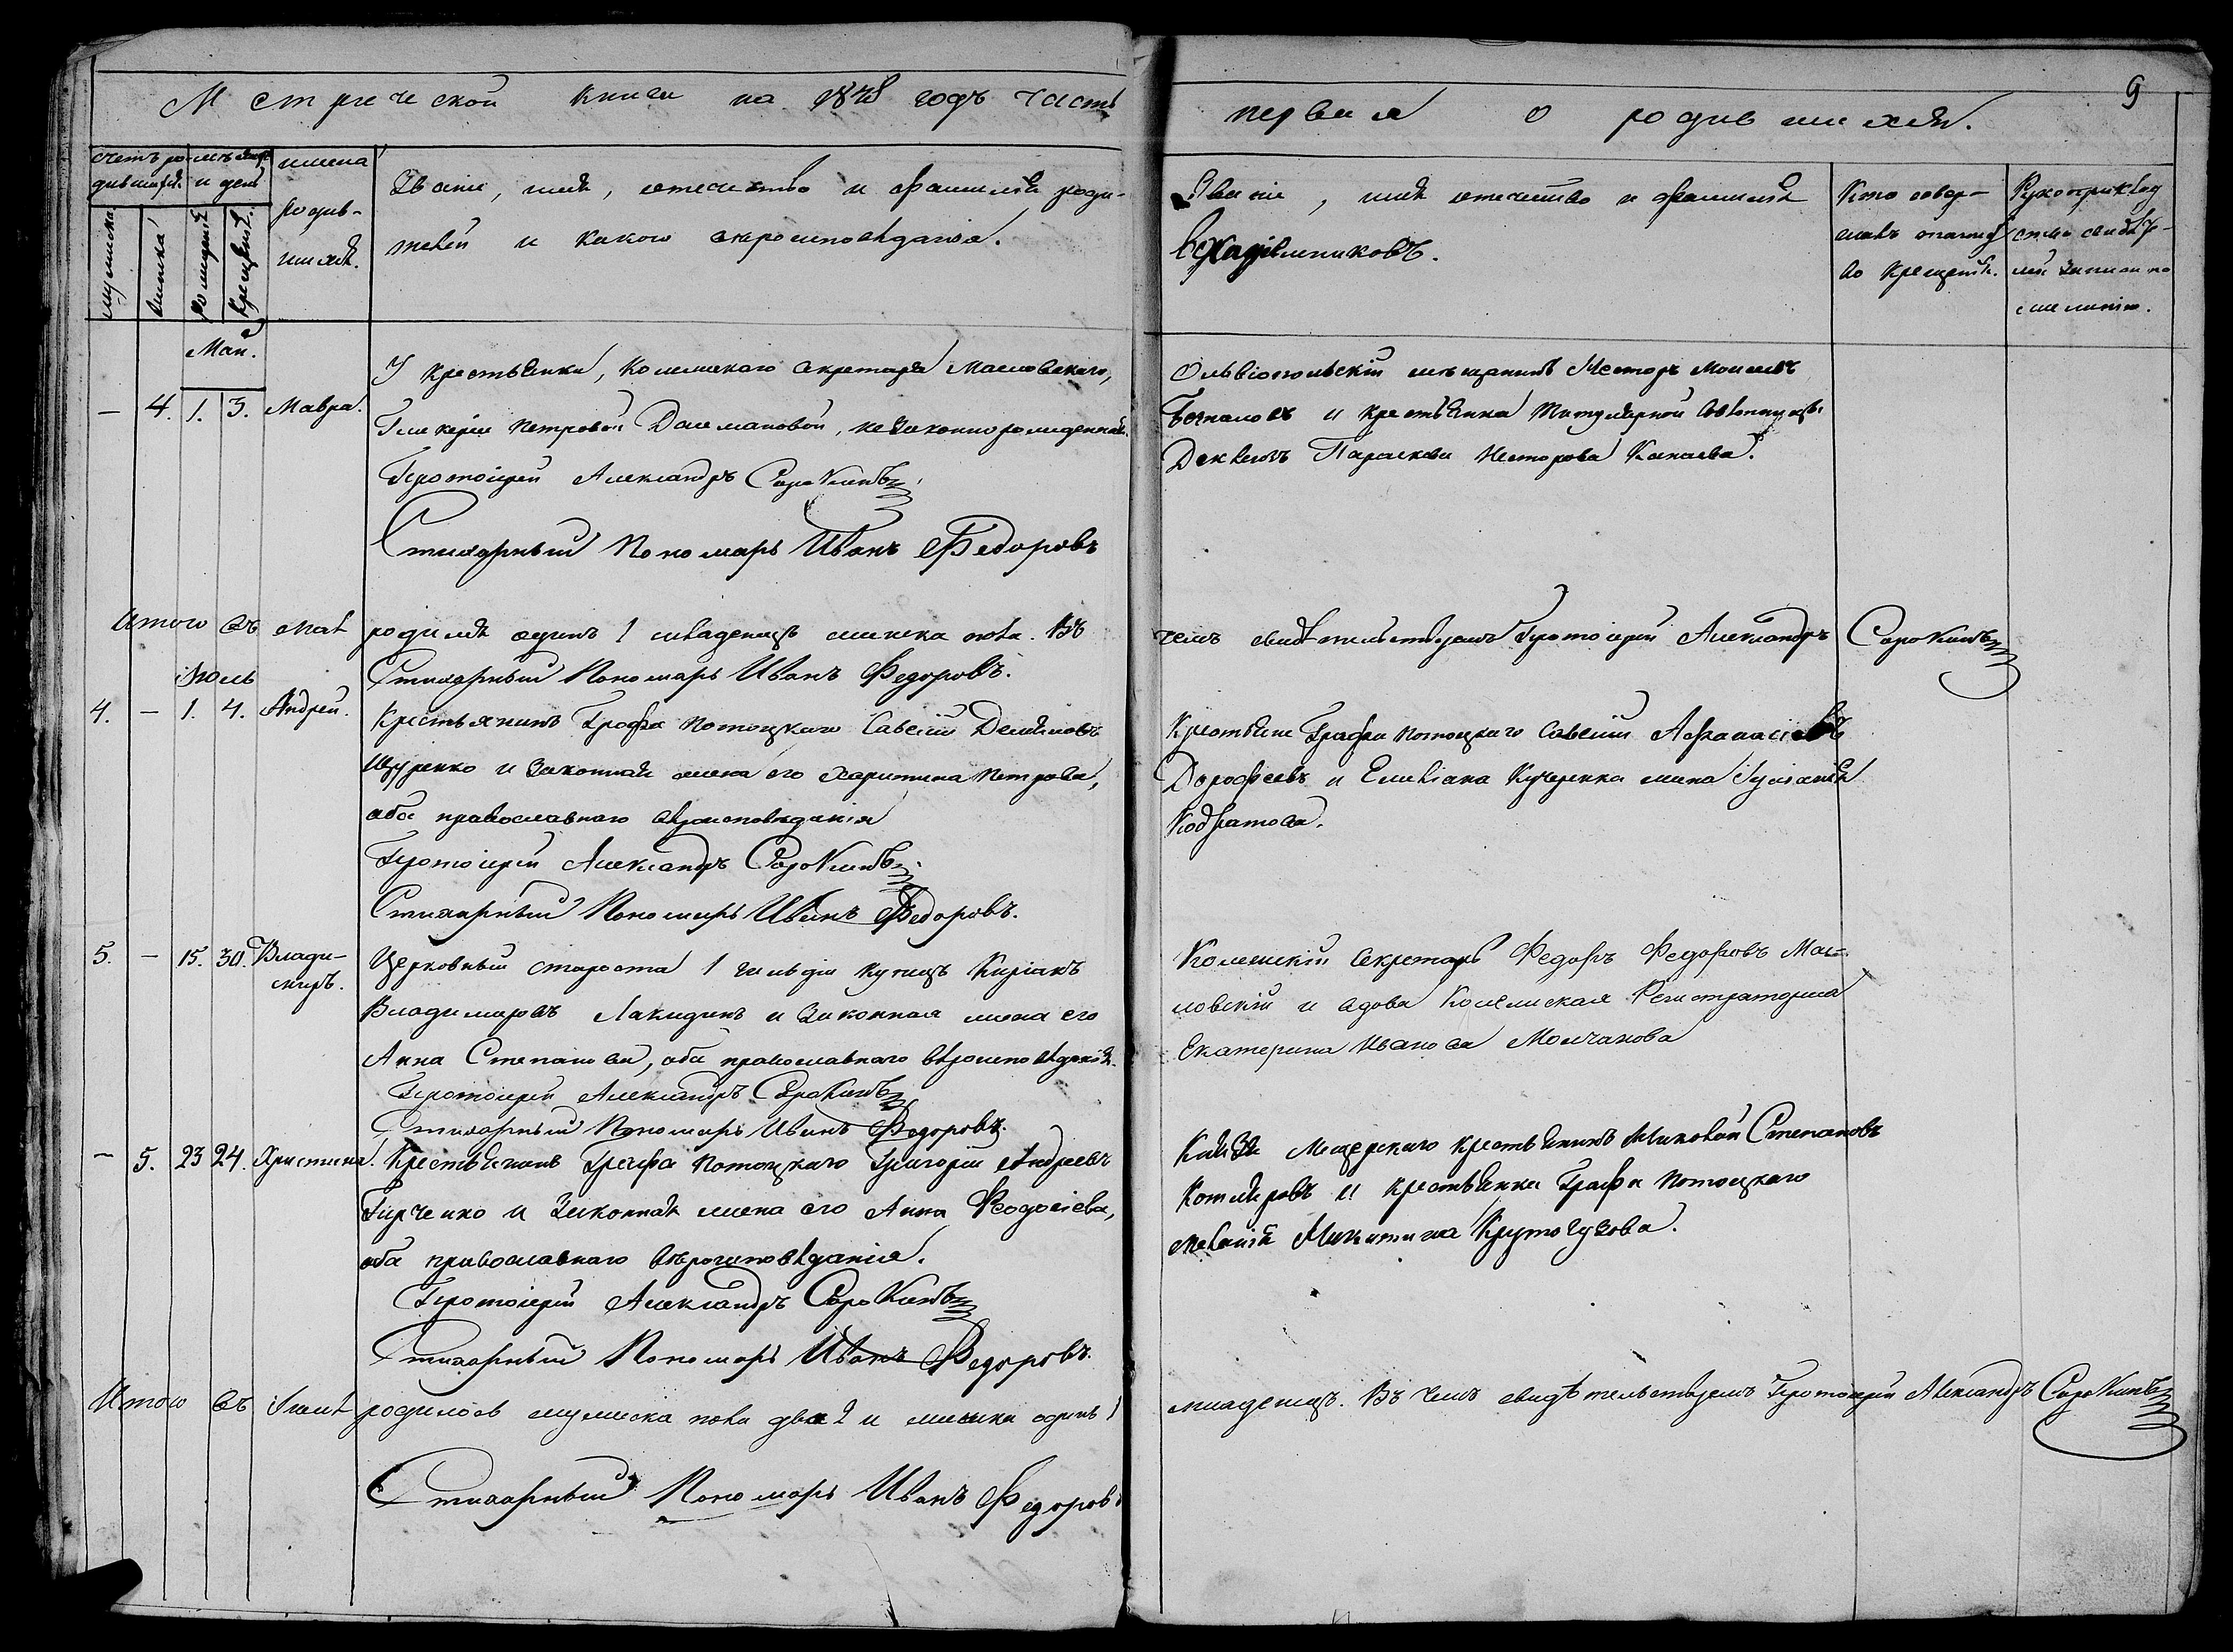 Метрической книги на 1848 годъ часть
первая о родившихся.
9
счетъ родившихся
мѣсяцъ и день
имена родившихся.
Званіе, имя, отечество и фамилія родителей и какого вѣроисповѣданія.
Званіе, имя отечество и фамилія восприемниковъ.
Кто совершалъ таинство крещенія.
Рукоприкладство свидѣтелей записи по желанію.
мужеска
женска
рожденія
крещенія
Маи.
— 4. 1. 3. Мавра.
У крестьянки, Колежскаго секретаря Масловскаго,
Гликеріи Петровой Далемановой, незаконнорожденная.
Протоіерей Александръ Сорокинъ
Стихарный Пономарь Иванъ Федоровъ
Ольвіопольскій мѣщанинъ Несторъ Моисеевъ
и крестьянка Титулярной Совѣтницы
Параскева Несторова Канаева.
Итого въ маѣ родился одинъ 1 младенецъ женска пола. Въ
чемъ свидѣтельствуемъ Протоіерей Александръ Сорокинъ
Стихарный Пономарь Иванъ Федоровъ.
Іюль
4. — 1. 4. Андрей.
Крестьянинъ Графа Потоцкаго Савелій Демяновъ
Щуренко и законная жена его Харитина Петрова,
оба православнаго вѣроисповѣданія
Протоіерей Александръ Сорокинъ
Стихарный Пономарь Иванъ Федоровъ.
Крестьяне Графа Потоцкаго Савелій Афанасіевъ
Дорофеевъ и Емеліана Кучеренка жена Іуліанія
Кодратова.
5. — 15. 30. Влади-
миръ.
Церковный староста 1 гильдіи купецъ Киріакъ
Владимировъ Лакидинъ и законная жена его
Анна Степанова, оба православнаго вѣроисповѣданія.
Протоіерей Александръ Сорокинъ
Стихарный Пономарь Иванъ Федоровъ.
Колежскій Секретарь Федоръ Федоровъ Мас-
ловскій и вдова Колежская Регистраторша
Екатерина Иванова Молчанова
— 5. 23 24. Христина.
Крестьянинъ Графа Потоцкаго Григорій Андреевъ
Гирченко и законная жена его Анна Феодосіева,
оба православнаго вѣроисповѣданія.
Протоіерей Александръ Сорокинъ
Стихарный Пономарь Иванъ Федоровъ.
Князя Мещерскаго крестьянинъ Яковъ Степановъ
Котляровъ и крестьянка Графа Потоцкаго
Меланія Микитина Крутогузова.
Итого въ Іюлѣ родилось мужеска пола два 2 и женска одинъ 1
младенецъ. Въ чемъ свидѣтельствуемъ Протоіерей Александръ Сорокинъ
Стихарный Пономарь Иванъ Федоровъ